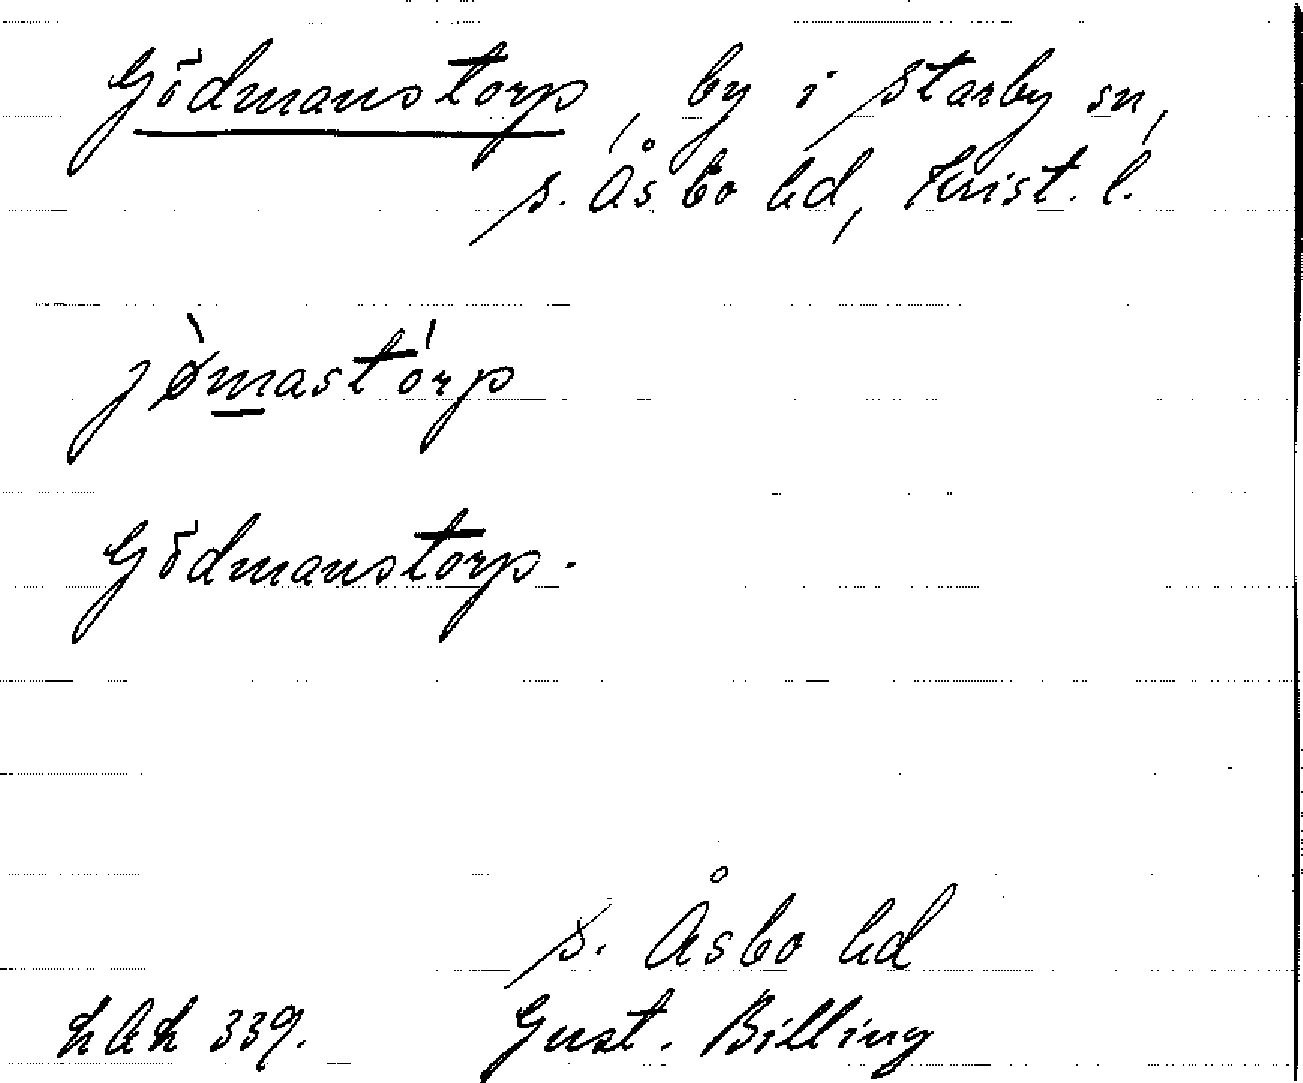 Gödmanstorp, by i Starby sn,
s. Åsbo hd, Krist. l.
jø̀mastórp
Gödmanstorp.
s. Åsbo hd
LAL 339. Gust. Billing